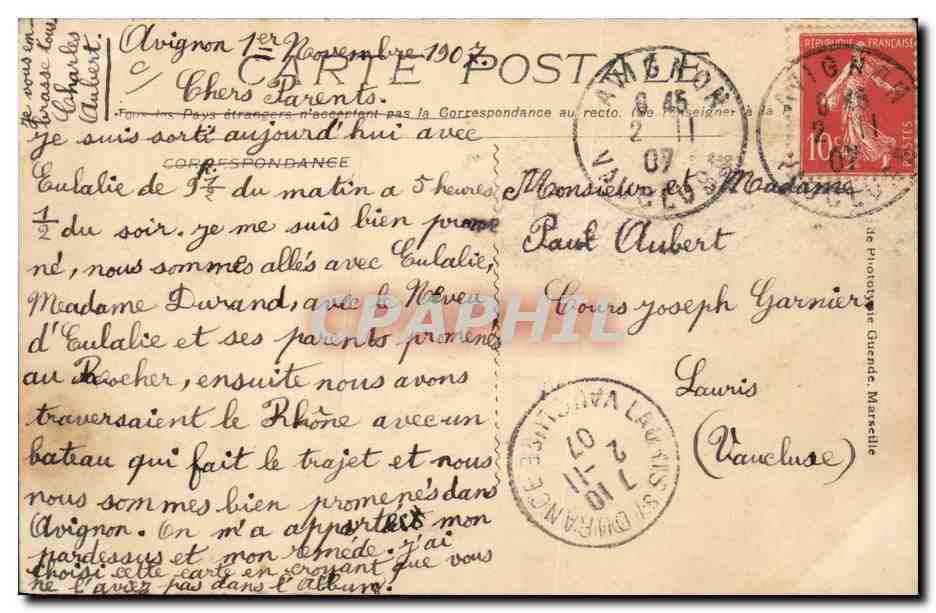 Avignon 1er Novembre 1907.
CARTE POSTALE
Chers Parents.
Tous les Pays étrangers n'acceptent pas la Correspondance au recto. (Se renseigner à la
je suis sorti aujourd'hui avec
CORRESPONDANCE
Eulalie de 9 h ½ du matin a 5 heures
½ du soir. je me suis bien prome
né, nous sommes allés avec Eulalie,
Madame Durand, avec le Neveu
d'Eulalie et ses parents promenés
au Rocher, ensuite nous avons
traversaient le Rhône avec un
bateau qui fait le trajet et nous
nous sommes bien promenés dans
Avignon. On m'a apporté mon
pardessus et mon remède. j'ai
choisi cette carte en croyant que vous
ne l'aviez pas dans l'Album.
je vous em-
brasse tous
Charles
Aubert.
Monsieur et Madame
Paul Aubert
Cours joseph Garnier
Lauris
(Vaucluse)
AVIGNON
9 45
2 11
07
VAUCLUSE
RÉPUBLIQUE FRANÇAISE
10c
POSTES
AVIGNON
9 45
2 11
07
VAUCLUSE
LAURIS S/ DURANCE VAUCLUSE
7 10
2 11
07
de Phototypie Guende, Marseille
CPAPHIL